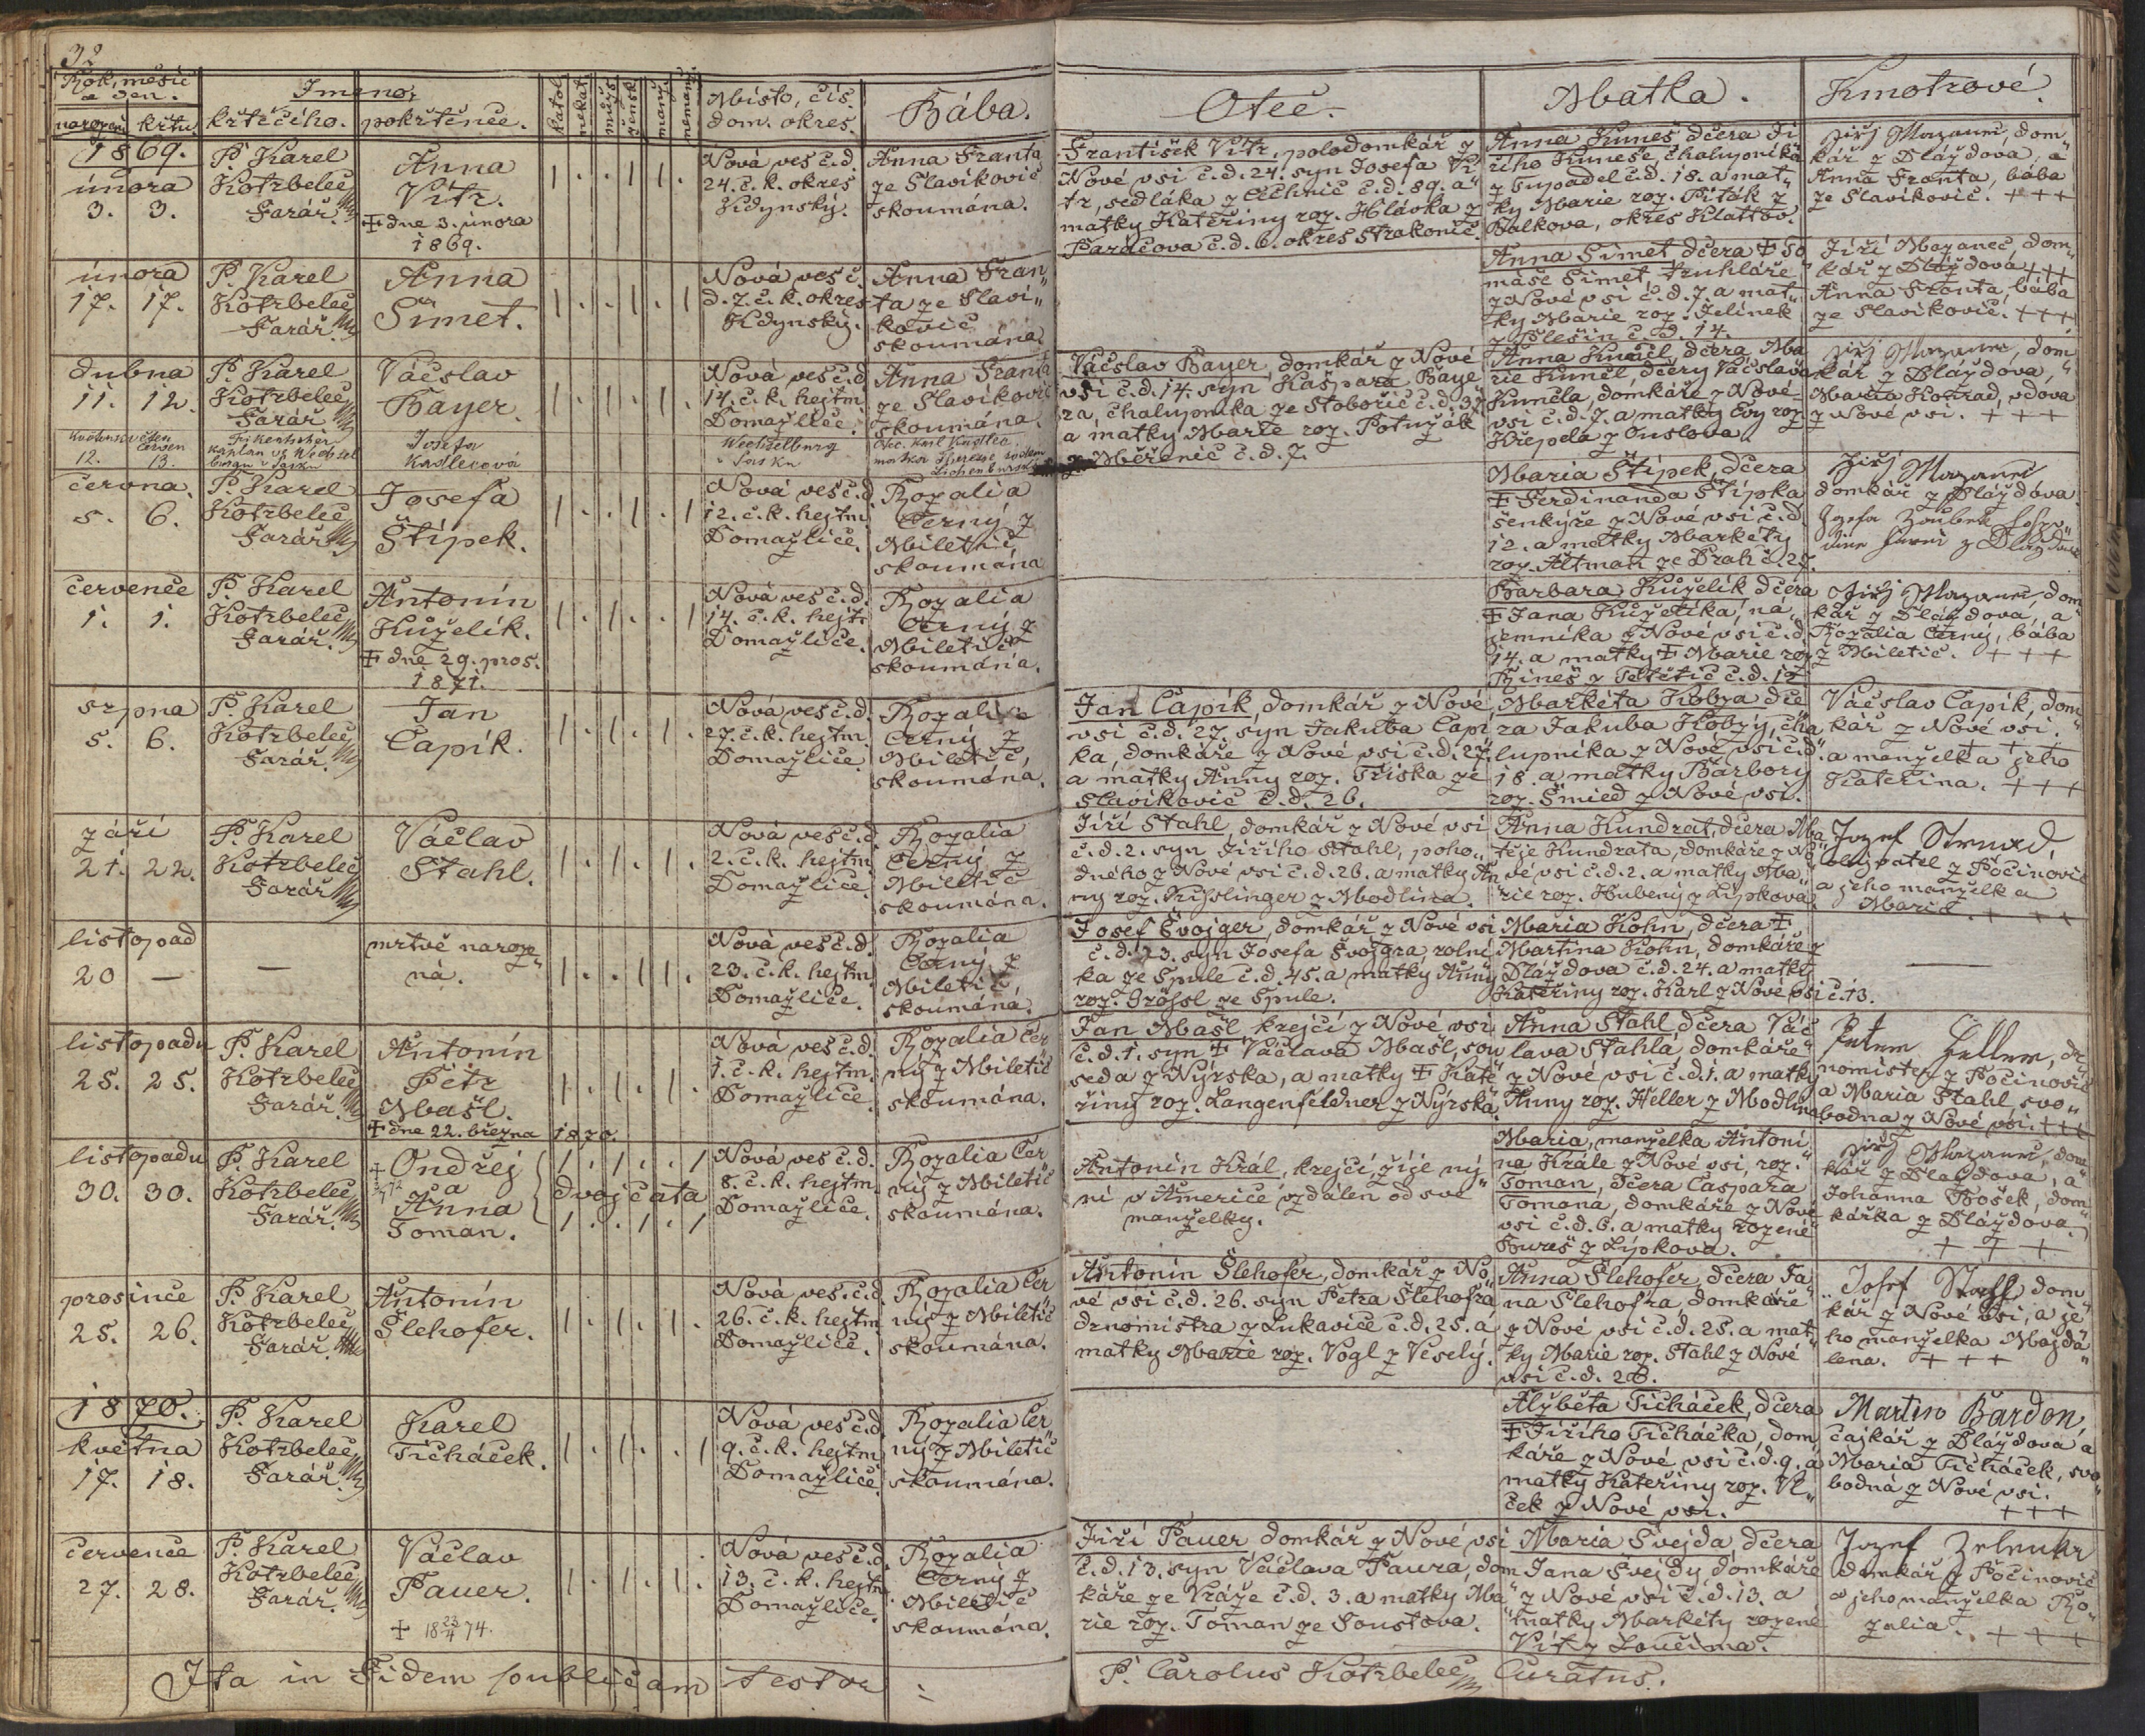 32
Rok, měsíc
a den.
narození
křtu.
Jméno,
křtícího.
pokřtěnce.
katol.
nekat.
mužs.
žensk.
manž.
nemanž.
Místo, čís.
dom. okres.
Bába.
Otec.
Matka.
Kmotrové.
1869.
února
3. 3.
P. Karel
Kotrbelec
Farář.
Anna
Vítr.
+ dne 3. února
1869.
1 . . 1 1 .
Nová ves č.d.
24. c.k. okres
Kdynský.
Anna Franta
ze Slavíkovic
skoumána.
František Vítr, polodomkář z
Nové vsi č.d. 24. syn Josefa Ví
tr, sedláka z Čechnic č.d. 89. a
matky Kateřiny roz. Hlávka z
Paračova č.d. 6. okres Strakonic.
Anna Kuneš dcera Ji
řího Kuneše, chalupníka
z Tupadel č.d. 18. a mat„
ky Marie roz. Piták z
Balkova, okres Klattov.
Jiřj Mazanec, dom„
kář z Dlážďova, a
Anna Franta, bába
ze Slavíkovic. + + +
února
17. 17.
P. Karel
Kotrbelec
Farář.
Anna
Šimet.
1 . . 1 . 1
Nová ves č.
d. 7. c.k. okres
Kdynský.
Anna Fran„
ta ze Slaví„
kovic
skoumána.
Anna Šimet dcera + To
máše Šimet, truhláře
z Nové vsi č.d. 7. a mat„
ky Marie roz. Jelínek
z Plešin č.d. 14.
Jiří Mazanec, dom„
kář z Dlážďova +++
Anna Franta, bába
ze Slavíkovic. +++
dubna
11. 12.
P. Karel
Kotrbelec
Farář
Václav
Bayer.
1 . 1 . 1 .
Nová ves č.d.
14. c.k. hejtm.
Domažlice.
Anna Franta
ze Slavíkovic
skoumána.
Václav Bayer, domkář z Nové
vsi č.d. 14. syn Kašpara Baye
ra, chalupníka ze Stobořic č.d. 37
a matky Marie roz. Potužák
z Měřenic č.d. 7.
Anna Kuncl, dcera Ma
rie Kuncl, dcery Václava
Kuncla, domkáře z Nové
vsi č.d. 7. a matky Evy roz
Křepela z Ouslova.
Jiřj Mazanec, dom
kář z Dlážďova,
Maria Konrad, vdova
z Nové vsi. + + +
červen
12. 13.
kaplan ve Wechsel
burgu v Sasku
Josefa
Kadlecová
Wechselburg
v Sasku
Otec. Karl Kadlec.
matka Therese rodem
června.
5. 6.
P. Karel
Kotrbelec
Farář.
Josefa
Štípek.
1 . . 1 . 1
Nová ves č.d.
12. c.k. hejtm.
Domažlice.
Rozalia
Černý z
Miletic,
skoumána
Maria Štípek, dcera
+ Ferdinanda Štípka
šenkýře z Nové vsi č.d.
12. a matky Markéty
roz. Altman ze Prah č. 25.
Jiřj Mazanec
domkář z Dlážďova.
července
1. 1.
P. Karel
Kotrbelec
Farář.
Antonín
Kuželík.
+ dne 29. pros.
1871.
1 . 1 . . 1
Nová ves č.d.
14. c.k. hejt.
Domažlice.
Rozalia
Černý z
Miletic
skoumána.
Barbara Kuželík dcera
+ Jana Kuželíka, ná„
jemníka z Nové vsi č.d.
14. a matky + Marie roz
Rineš z Tetětic č.d. 12
Jiřj Mazanec dom
kář z Dlážďova, a
Rozalia Černý, bába
z Miletic. + + +
srpna
5. 6.
P. Karel
Kotrbelec
Farář.
Jan
Čapík.
1 . 1 . 1 .
Nová ves č.d.
27. c.k. hejtm.
Domažlice.
Rozalie
Černý z
Miletic,
skoumána.
Jan Čapík, domkář z Nové
vsi č.d. 27. syn Jakuba Čapí
ka, domkáře z Nové vsi č.d. 27.
a matky Anny roz. Tříska ze
Slavíkovic č.d. 26.
Markéta Kobza dce
ra Jakuba Kobzy, cha
lupníka z Nové vsi č.d.
18. a matky Barbory
roz. Šmied z Nové vsi.
Václav Čapík, dom„
kář z Nové vsi.
a manželka jeho
Kateřina. + + +
září
21. 22.
P. Karel
Kotrbelec
Farář
Václav
Stahl.
1 . 1 . 1 .
Nová ves č.d.
2. c.k. hejtm.
Domažlice.
Rozalia
Černý z
Miletic
skoumána.
Jiří Stahl, domkář z Nové vsi
č.d. 2. syn Jiřího Stahl, poho„
dného z Nové vsi č.d. 26. a matky An
ny roz. Kisslinger z Modlína.
Anna Kundrat, dcera Ma
těje Kundrata, domkáře z No
vé vsi č.d. 2. a matky Ma„
rie roz. Hubený z Lipkova.
Jozef Strnad,
obyvatel z Počínovic
a jeho manželka
Marie. + + +
listopad
20 —
—
mrtvě naroze„
ná.
1 . . 1 1 .
Nová ves č.d.
23. c.k. hejtm.
Domažlice
Rozalia
Černý z
Miletic,
skoumána.
Josef Švojger, domkář z Nové vsi
č.d. 23. syn Josefa Švojgra, rolní
ka ze Spule č.d. 45. a matky Anny
roz. Grössl ze Spule.
Maria Kohn, dcera +
Martina Kohn, domkáře z
Dlážďova č.d. 24. a matky
Kateřiny roz. Karl z Nové vsi č. 13.
—
listopadu
25. 25.
P. Karel
Kotrbelec
Farář.
Antonín
Petr
Mašl.
+ dne 22. března 1870.
1 . 1 . 1 .
Nová ves č.d.
1. c.k. hejtm.
Domažlice.
Rozalia Čer
ný z Miletic
skoumána.
Jan Mašl, krejčí z Nové vsi
č.d. 1. syn + Václava Mašl, sou
seda z Nýrska, a matky + Kate
řiny roz. Langenfeldner z Nýrska.
Anna Stahl, dcera Vác
lava Stahla, domkáře
z Nové vsi č.d. 1. a matky
Anny roz. Heller z Modlína
Peter Heller, dr
nomistr z Počínovic
a Maria Stahl svo„
bodna z Nové vsi. +++
listopadu
30. 30.
P. Karel
Kotrbelec
Farář.
+ Ondřej
a
Anna
Toman.
1 . 1 . . 1
dvojčata
1 . . 1 . 1
Nová ves č.d.
8. c.k. hejtm.
Domažlice.
Rozalia Čer
ný z Miletic
skoumána.
Antonín Král, krejčí, žije ný
ní v Americe vzdálen od své
manželky.
Maria, manželka Antoní
na Krále z Nové vsi, roz.
Toman, dcera Caspara
Tomana, domkáře z Nové
vsi č.d. 6. a matky rozené
Bureš z Lipkova.
Jiřj Mazanec, dom
kář z Dlážďova, a
Johanna Bošek, dom„
kářka z Dlážďova.
+ + +
prosince
25. 26.
P. Karel
Kotrbelec
Farář.
Antonín
Šlehofer.
1 . 1 . 1 .
Nová ves č.d.
26. c.k. hejtm.
Domažlice.
Rozalia Čer
ný z Miletic
skoumána.
Antonín Šlehofer, domkář z No
vé vsi č.d. 26. syn Petra Šlehofra
drnomistra z Lukavice č.d. 25. a
matky Marie roz. Vogl z Veselý.
Anna Šlehofer, dcera Ja
na Šlehofra, domkáře
z Nové vsi č.d. 28. a mat
ky Marie roz. Stahl z Nové
vsi č.d. 28.
Josef Stahl, dom
kář z Nové Vsi, a je„
ho manželka Majda„
lena. + + +
1870.
května
17. 18.
P. Karel
Kotrbelec
Farář.
Karel
Ticháček.
1 . 1 . . 1
Nová ves č.d.
9. c.k. hejtm.
Domažlice
Rozalia Čer
ný z Miletic
skoumána.
Alžběta Ticháček, dcera
+ Jiřího Ticháčka, dom
káře z Nové vsi č.d. 9. a
matky Kateřiny roz. Vl„
ček z Nové vsi.
Martin Bardon,
čajkář z Dlážďova a
Maria Ticháček, svo„
bodná z Nové vsi.
+ + +
července
27. 28.
P. Karel
Kotrbelec
Farář.
Václav
Pauer.
+ 18 23/4 74.
1 . 1 . 1 .
Nová ves č.d.
13. c.k. hejtm.
Domažlice.
Rozalia
Černý z
Miletic
skoumána.
Jiří Pauer domkář z Nové vsi
č.d. 13. syn Václava Paura, dom
káře ze Vráže č.d. 3. a matky Ma
rie roz. Toman ze Soustova.
Maria Švejda, dcera
Jana Švejdy domkáře
z Nové vsi č.d. 13. a
matky Markéty rozené
Vít z Loučima.
Jozef Zelenka
domkář z Počínovic
a jeho manželka Ro„
zalia. + + +
Ita in Fidem publicam testor:
P. Carolus Kotrbelec Curatus.